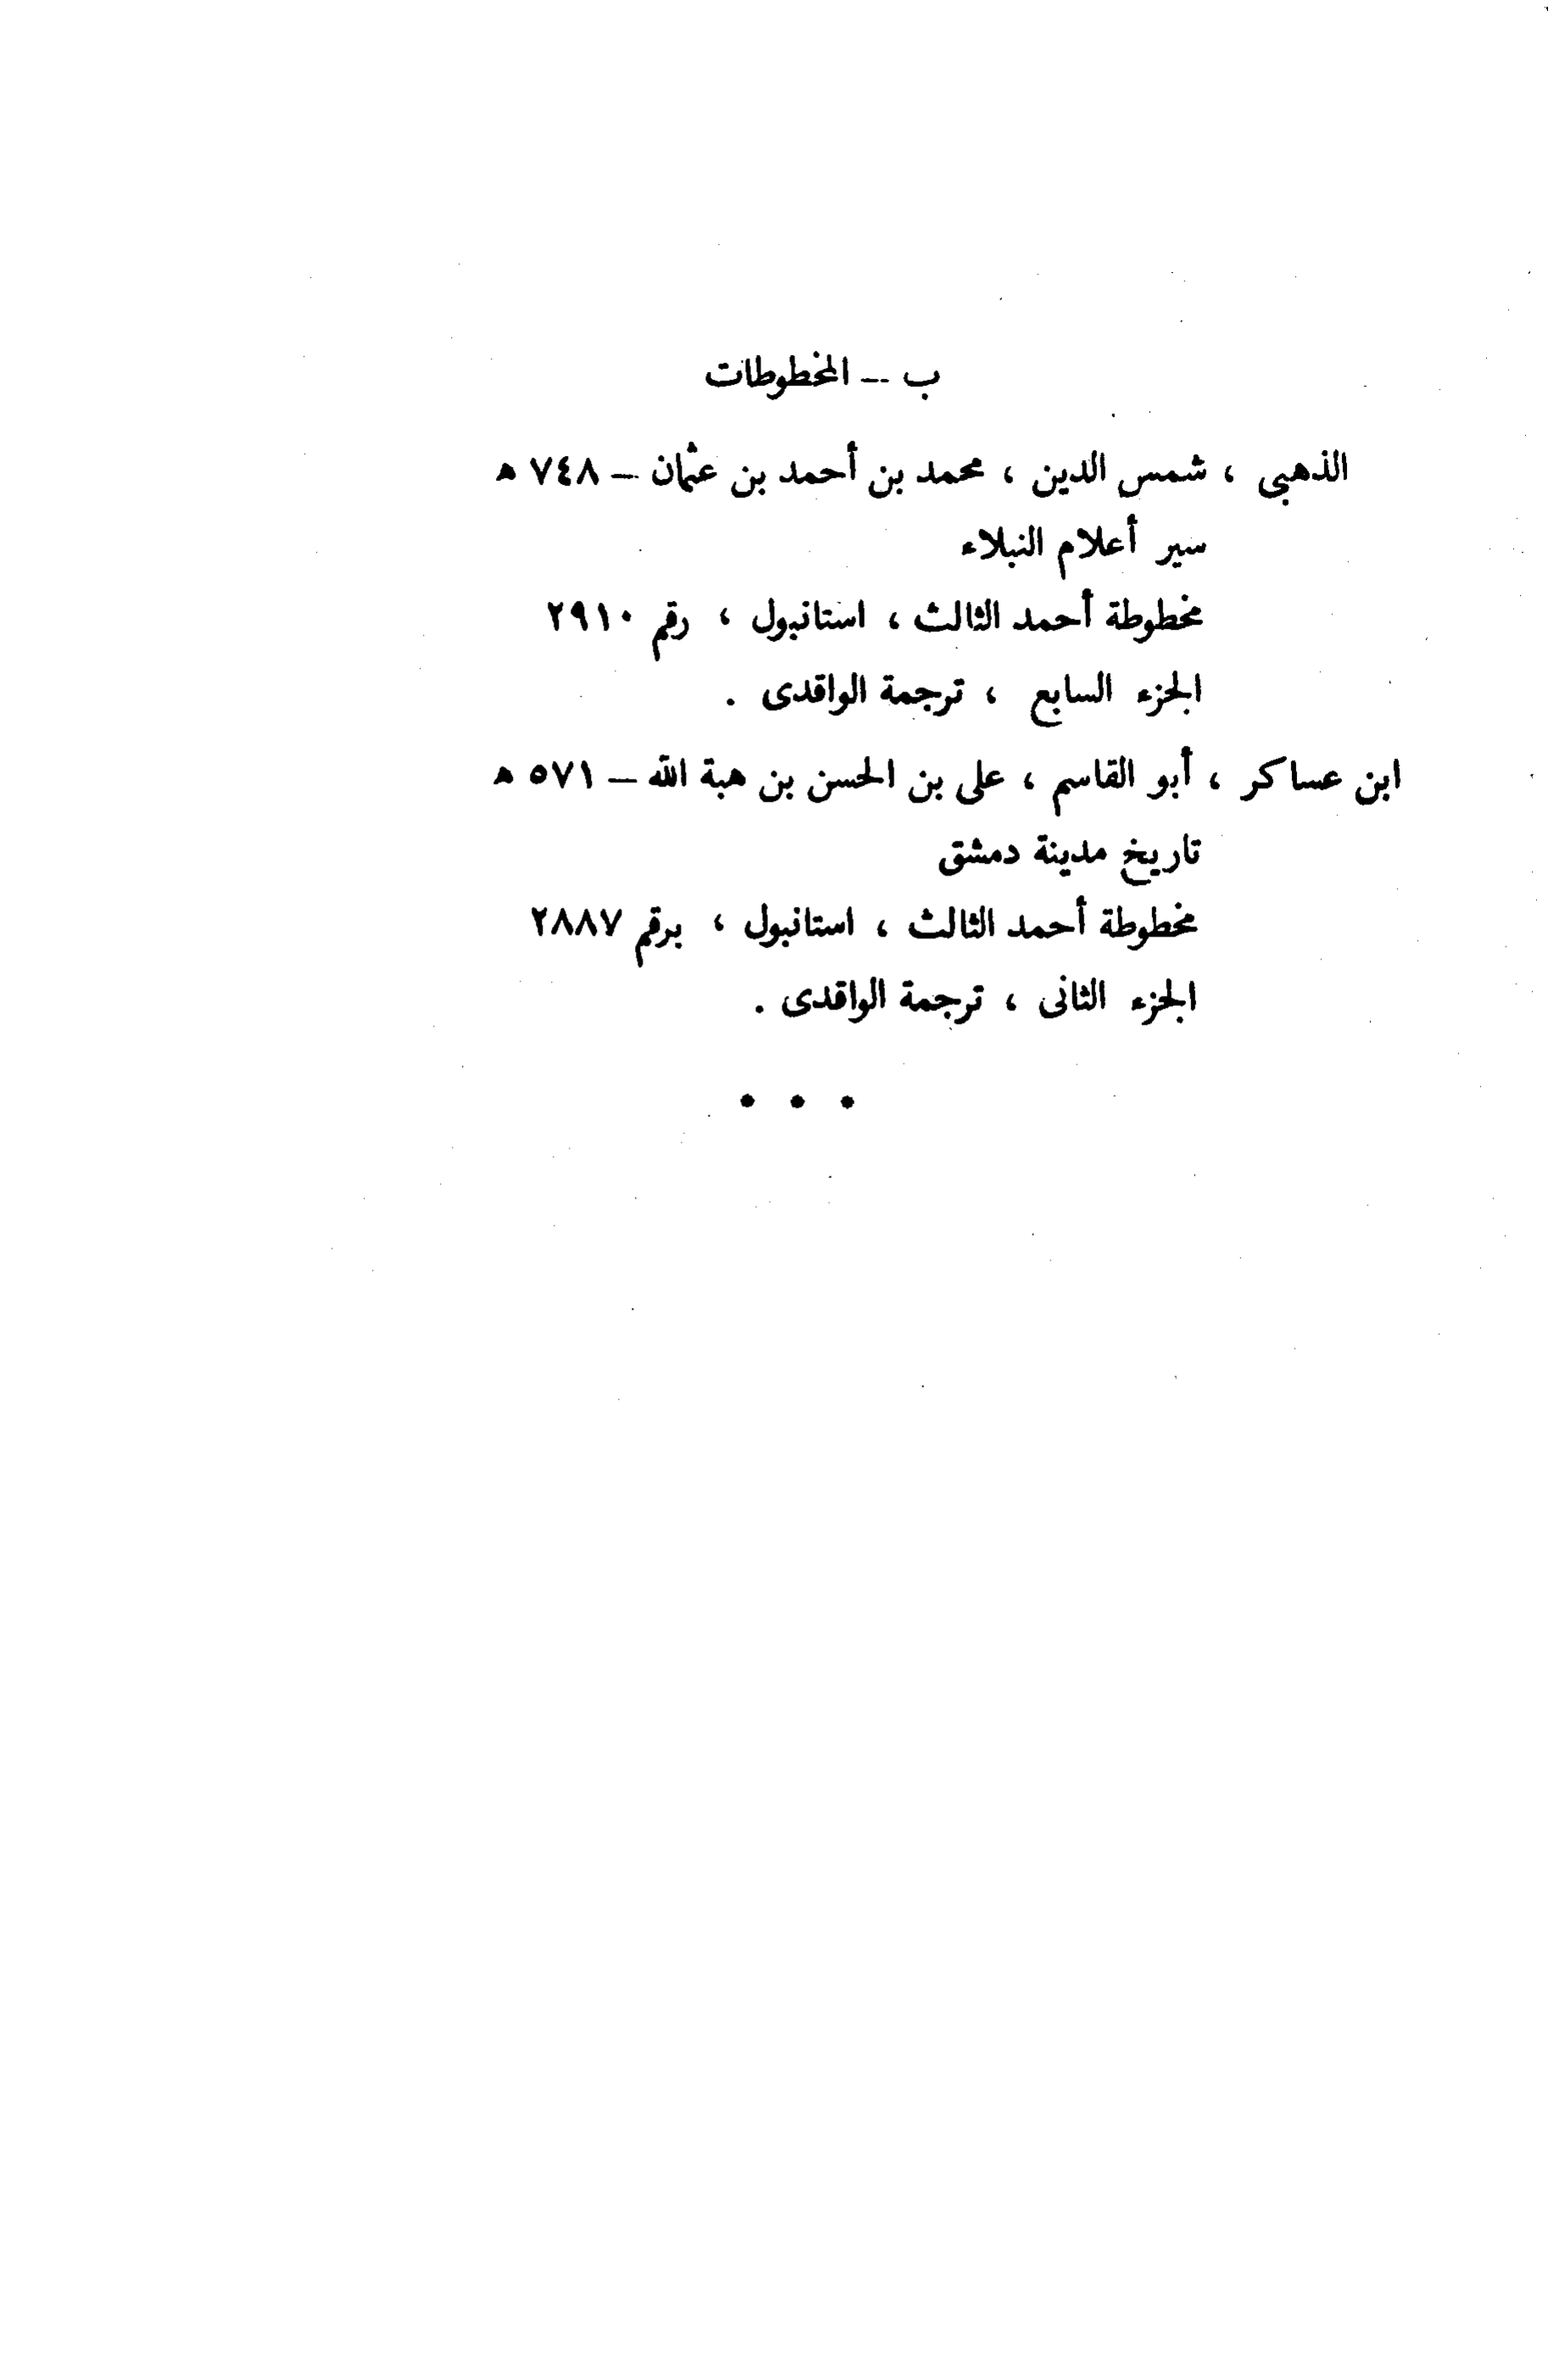 ب — المخطوطات
الذهبى ، شمس الدين ، محمد بن أحمد بن عثمان — ٧٤٨ ه
سير أعلام النبلاء
مخطوطة أحمد الثالث ، استانبول ، رقم ٢٩١٠
الجزء السابع ، ترجمة الواقدى .
ابن عساكر ، أبو القاسم ، على بن الحسن بن هبة الله — ٥٧١ ه
تاريخ مدينة دمشق
مخطوطة أحمد الثالث ، استانبول ، برقم ٢٨٨٧
الجزء الثانى ، ترجمة الواقدى .
• • •